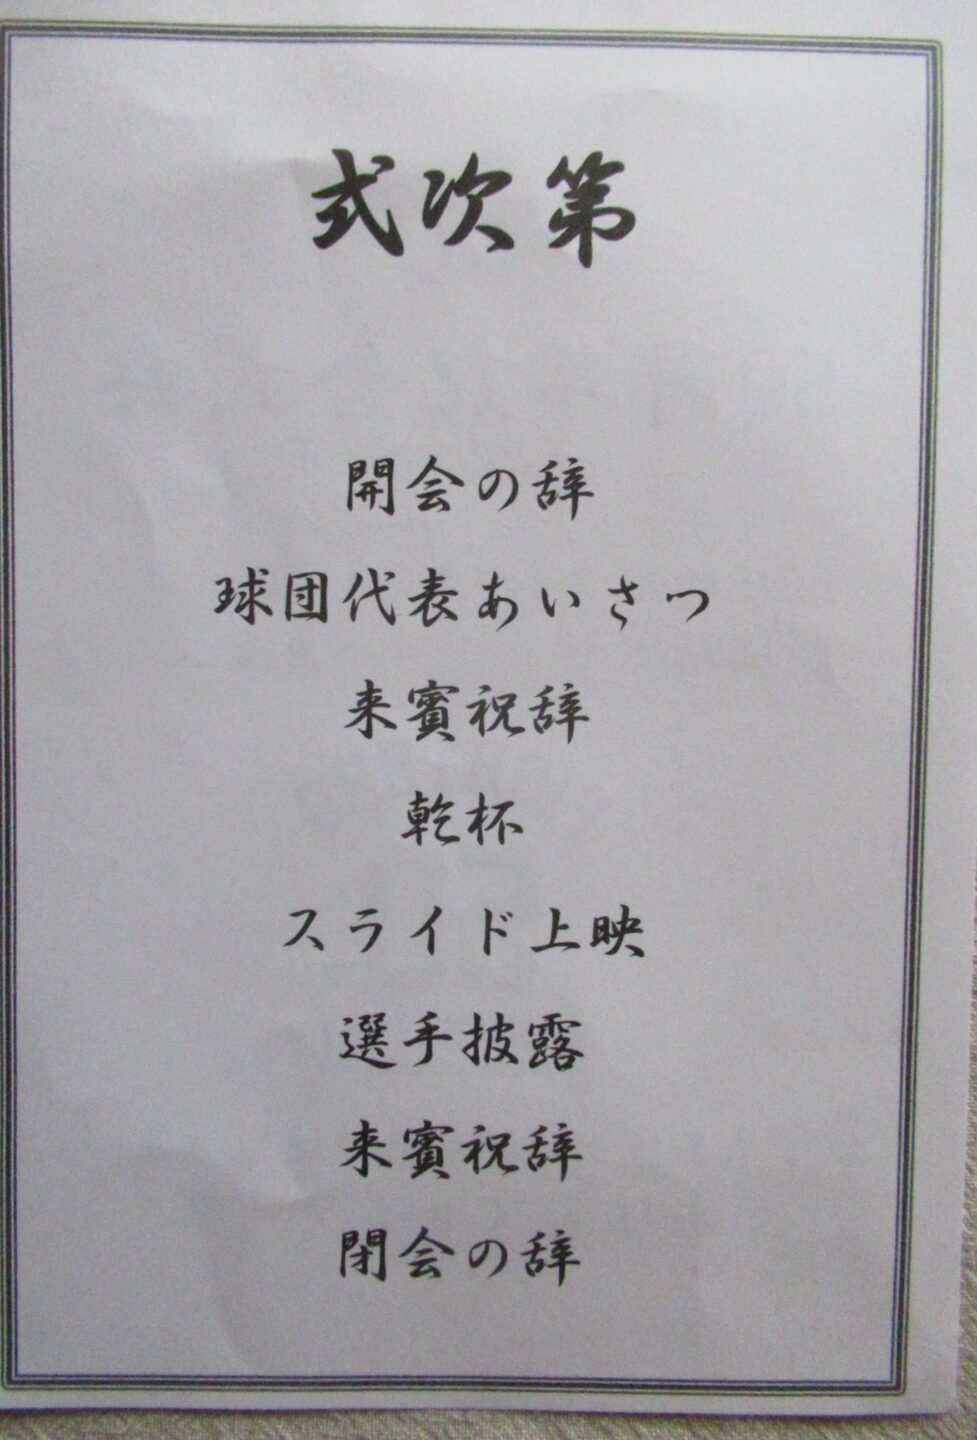 式次第
開会の辞
球団代表あいさつ
来賓祝辞
乾杯
スライド上映
選手披露
来賓祝辞
閉会の辞